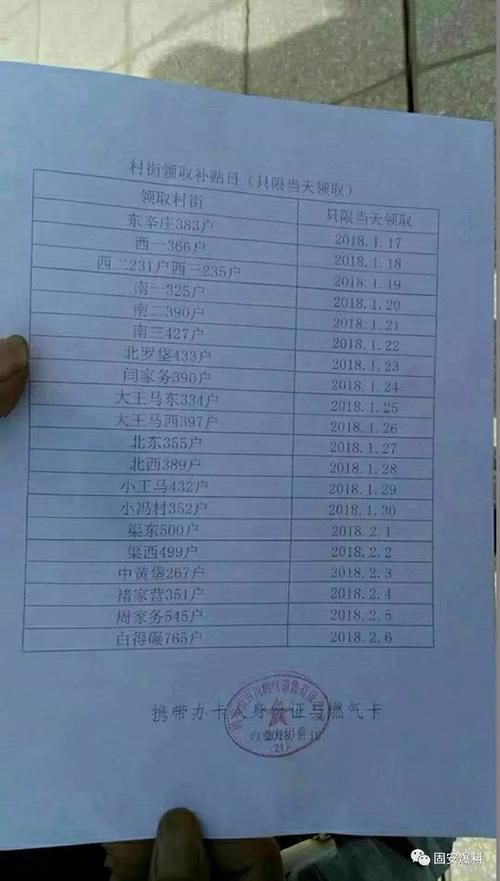 村街领取补贴日（只限当天领取）
领取村街 只限当天领取
东辛庄383户 2018.1.17
西一366户 2018.1.18
西二231户西三235户 2018.1.19
南一325户 2018.1.20
南二390户 2018.1.21
南三427户 2018.1.22
北罗垡433户 2018.1.23
闫家务390户 2018.1.24
大王马东334户 2018.1.25
大王马西397户 2018.1.26
北东355户 2018.1.27
北西389户 2018.1.28
小王马432户 2018.1.29
小冯村352户 2018.1.30
渠东500户 2018.2.1
渠西499户 2018.2.2
中黄垡267户 2018.2.3
褚家营351户 2018.2.4
周家务545户 2018.2.5
白得碾765户 2018.2.6
携带办卡人身份证与燃气卡
(21)
固安爆料